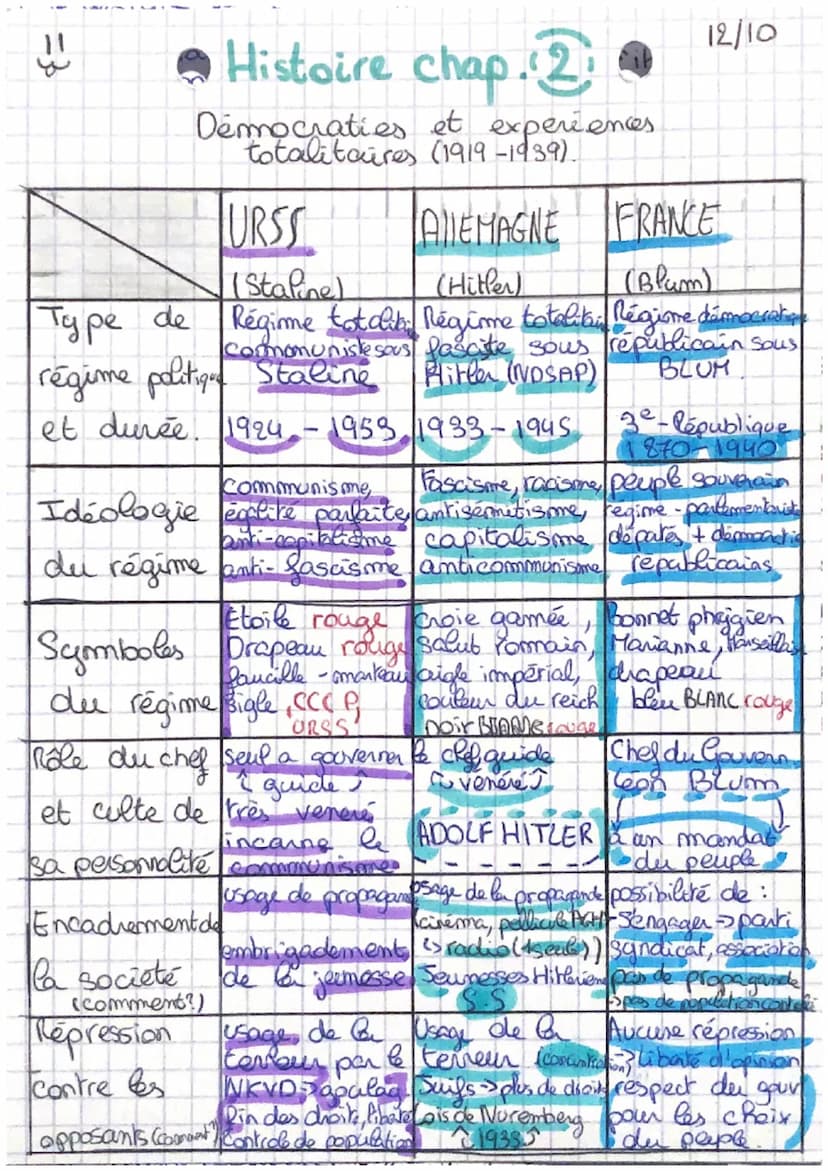 12/10
Histoire chap. 2
Démocraties et expériences
totalitaires (1919-1939).
URSS
(Staline)
AllEMAGNE
(Hitler)
FRANCE
(Blum)
Type de
régime politique
et durée.
Régime totalitai
communiste sous
Staline
1924 - 1953
Régime totalitai
fasciste sous
Hitler (NDSAP)
1933 - 1945
Régime démocratique
républicain sous
BLUM.
3e - République
1870-1940
Idéologie
du régime
communisme,
égalité parfaite,
anti-capitalisme
anti-fascisme
Fascisme, racisme,
antisémitisme,
capitalisme
anticommunisme
peuple souverain
régime - parlementariste
députés + démocratie
républicains
Symboles
du régime
Etoile rouge
Drapeau rouge
faucille - marteau
sigle, CCCP,
URSS
croie gamée,
salut romain,
aigle impérial,
couleur du reich
noir BLANC rouge
bonnet phrygien
Marianne, Marseillaise
drapeau
bleu BLANC rouge
Rôle du chef
et culte de
sa personnalité
seul a gouverner
guide
très veneré
incarne le
communisme
le chef guide
vénéré
ADOLF HITLER
Chef du Gouvern.
Léon BLUM
à un mandat
du peuple
Encadrement de
la société
(comment?)
usage de propagande
embrigadement
de la jeunesse
usage de la propagande
(cinéma, pellicule AGFA
↳ radio (1 seule))
Jeunesses Hitlérienne
SS
possibilité de :
-S'engager → parti
syndicat, association
pas de propagande
→ pas de population contrôlé
Répression
contre les
opposants (comment?)
usage de la
terreur par le
NKVD → goulag
Fin des droits, liberté
controle de population
Usage de la
terreur (concentration)
Juifs → plus de droits
Lois de Nuremberg
1933
Aucune répression
→ liberté d'opinion
respect du gouv
pour les choix
du peuple.